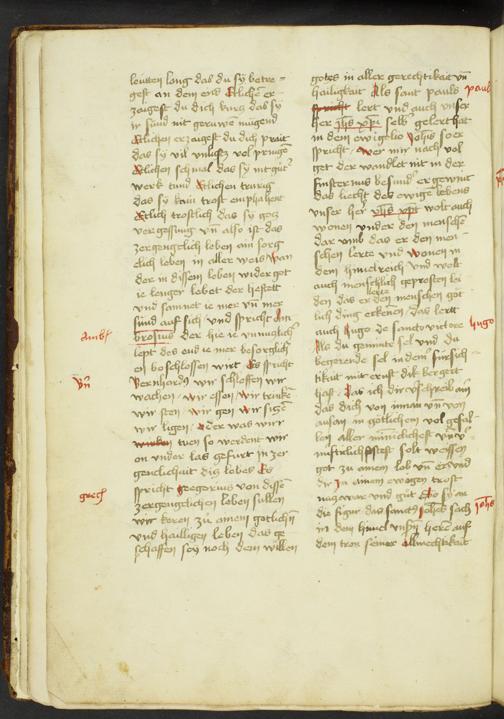 leutten long das du sy betre=
gest an dem end Etlichē er
zaigest du dich kurcz das sy
ir sund nit geruwē mugend
Etlichen erzaigest du dich prait
das sy vil unlust vol pringē
Etlichen schmal das sy nit gůt
werk tund Etlichen trurig
das sy kain trost enphahent
Etlich trostlich das sy gocz
vergessung vn̄ also ist das
zergenglich leben ain sorg
clich leben in aller weis wan
der in dissem leben wider got
ie lenger lebet der heffett
und samnet ie mer vn̄ mer
sund auf sich und spricht Am
brosius der hie ie unmuglich
lept des end ie mer besorglich
en beschlossen wirt Es spricht
Bernhardꝰ wir schloffen wir
wachen wir essen wir trinkē
wir sten wir gen wir siczē
wir ligen oder was wir
tuen so werdent wir
on under las gefurt in zer
genclichait dis lebēs Es
spricht Gregorius von dissē
zergengelichen leben sullen
wir keren zů ainem gotlichē
und hailligen leben das ge
schaffen sey noch dem willen
Ambꝭ
Bn̄
greg
gotes in aller gerechtikait vn̄
hailigkait Als sant pauls
lert und auch unser
her ihs xps selb gelert hat
in dem ewigelio Johs so er
spricht wer mir nach vol
get der wandlet nit in der
finsternus besund er gewint
das liecht des ewige lebens
unser her ihs xps wolt auch
wonen under den menschē
dar umb das er den men
schen lerte und wonen in
dem himelreich und wolt
auch menschlich geprosten lei
den das er den menschen got
lerte
lich ding erkenen das lert
auch Hugo de sancto victore
Als du gemintē sel und du
begerende sel in dem fürsich
tikait mit ernst dik begert
hast Das ich dir verschreib ain
das dich von innan vn̄ von
aussan in gotlichem wol gefal
len aller minicleichest
solt weissen
got zu ainem lob vn̄
dir zu ainem ewigen trost
nuczwar und gůt Als sy an
die figur das sanctꝰ Johēs sach
in dem himel unsern herē auf
dem tron seiner allmechtikait
paulꝰ
hugo
johēs